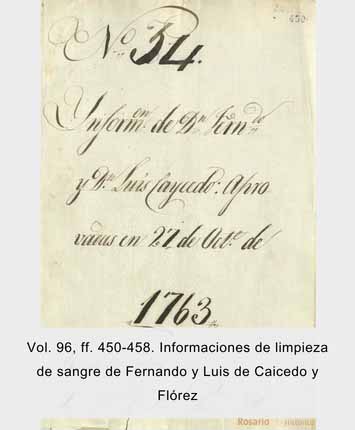 450
No. 34.
Informon. de Dn. Ferndo.
y Dn. Luis Caycedo: Apro
vadas en 27 de Octe. de
1763.
Vol. 96, ff. 450-458. Informaciones de limpieza
de sangre de Fernando y Luis de Caicedo y
Flórez
Rosario
Histórico